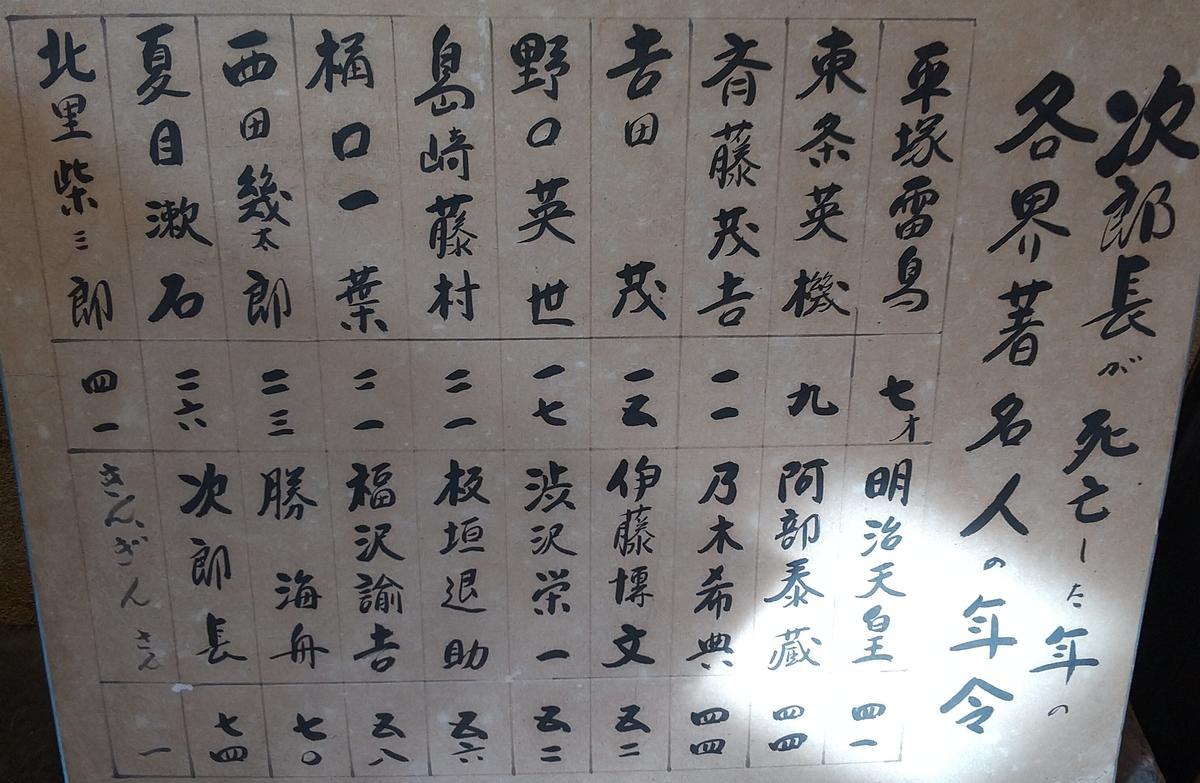 次郎長が死亡した年の
各界著名人の年令
平塚雷鳥 七才
東条英機 九
斉藤茂吉 一一
吉田茂 一五
野口英世 一七
島崎藤村 二一
樋口一葉 二一
西田幾太郎 二三
夏目漱石 二六
北里柴三郎 四一
明治天皇 四一
阿部泰蔵 四四
乃木希典 四四
伊藤博文 五二
渋沢栄一 五二
板垣退助 五六
福沢諭吉 五八
勝海舟 七〇
次郎長 七四
きん、ぎんさん 一